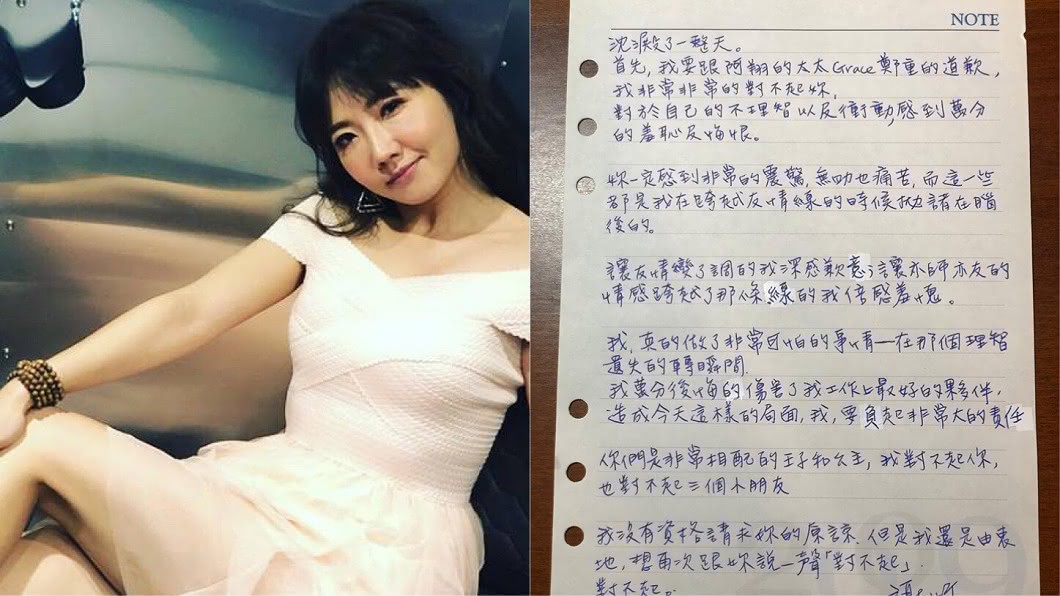 NOTE
沈澱了一整天。
首先,我要跟阿翔的太太Grace鄭重的道歉,
我非常非常的對不起妳,
對於自己的不理智以及衝動,感到萬分
的羞恥及悔恨。
妳一定感到非常的震驚,無助也痛苦,而這一些
都是我在跨越友情線的時候拋諸在腦
後的。
讓友情變了調的我深感歉意;讓亦師亦友的
情感跨越了那條線的我倍感羞愧。
我,真的做了非常可怕的事情—在那個理智
遺失的瞬間.
我萬分後悔的傷害了我工作上最好的夥伴,
造成今天這樣的局面,我,要負起非常大的責任
你們是非常相配的王子和公主,我對不起你,
也對不起三個小朋友
我沒有資格請求妳的原諒.但是我還是由衷
地,想再次跟妳說一聲「對不起」.
對不起。